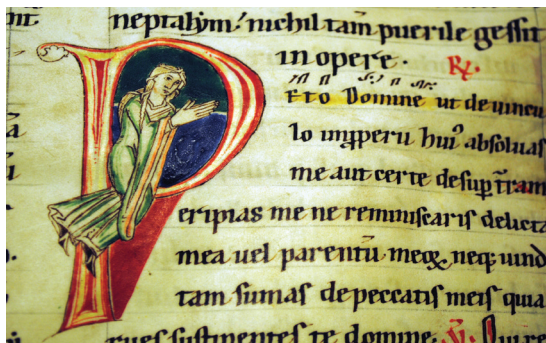 neptalym nichil tam puerile gessit
in opere. R.
PEto Domine ut de uincu
lo imꝓperii hui⁹ absoluas
me aut certe desuꝑ t̄ram
eripias me ne reminiscaris delicta
mea uel parentū meoꝝ neqꝫ uind
tam sumas de peccatis meis quia
sustinentes te domine. V. Qui re